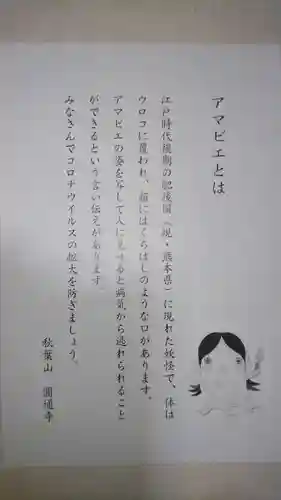 アマビエとは
江戸時代後期の肥後国（現・熊本県）に現れた妖怪で、体は
ウロコに覆われ、顔にはくちばしのような口があります。
アマビエの姿を写して人に見せると病気から逃れられること
ができるという言い伝えがあります。
みなさんでコロナウイルスの拡大を防ぎましょう。
秋葉山 圓通寺